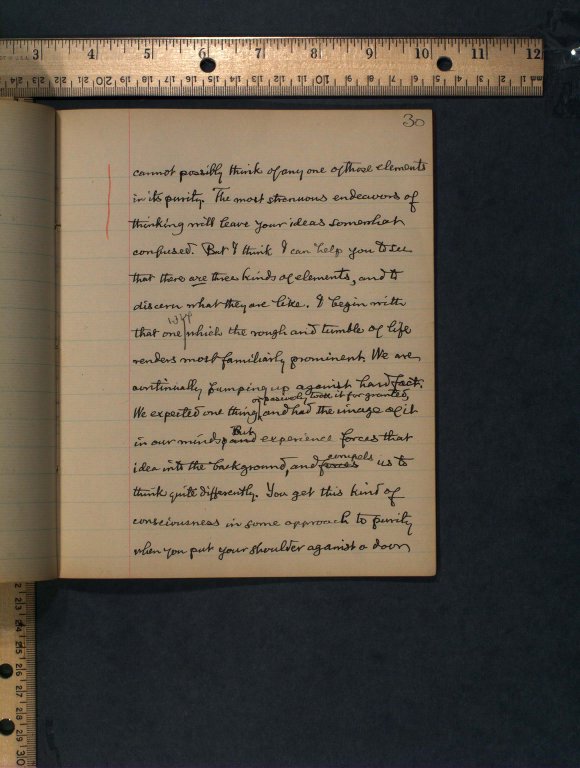 30
cannot possibly think of any one of those elements
in its purity. The most strenuous endeavors of
thinking will leave your ideas somewhat
confused. But I think I can help you to see
that there are three kinds of elements, and to
discern what they are like. I begin with
that one which the rough and tumble of life
renders most familiarly prominent. We are
continually bumping up against hard fact.
or passively took it for granted,
We expected one thing, and had the image of it
But
in our minds, and experience forces that
compels
idea into the background, and forces us to
think quite differently. You get this kind of
consciousness in some approach to purity
when you put your shoulder against a door